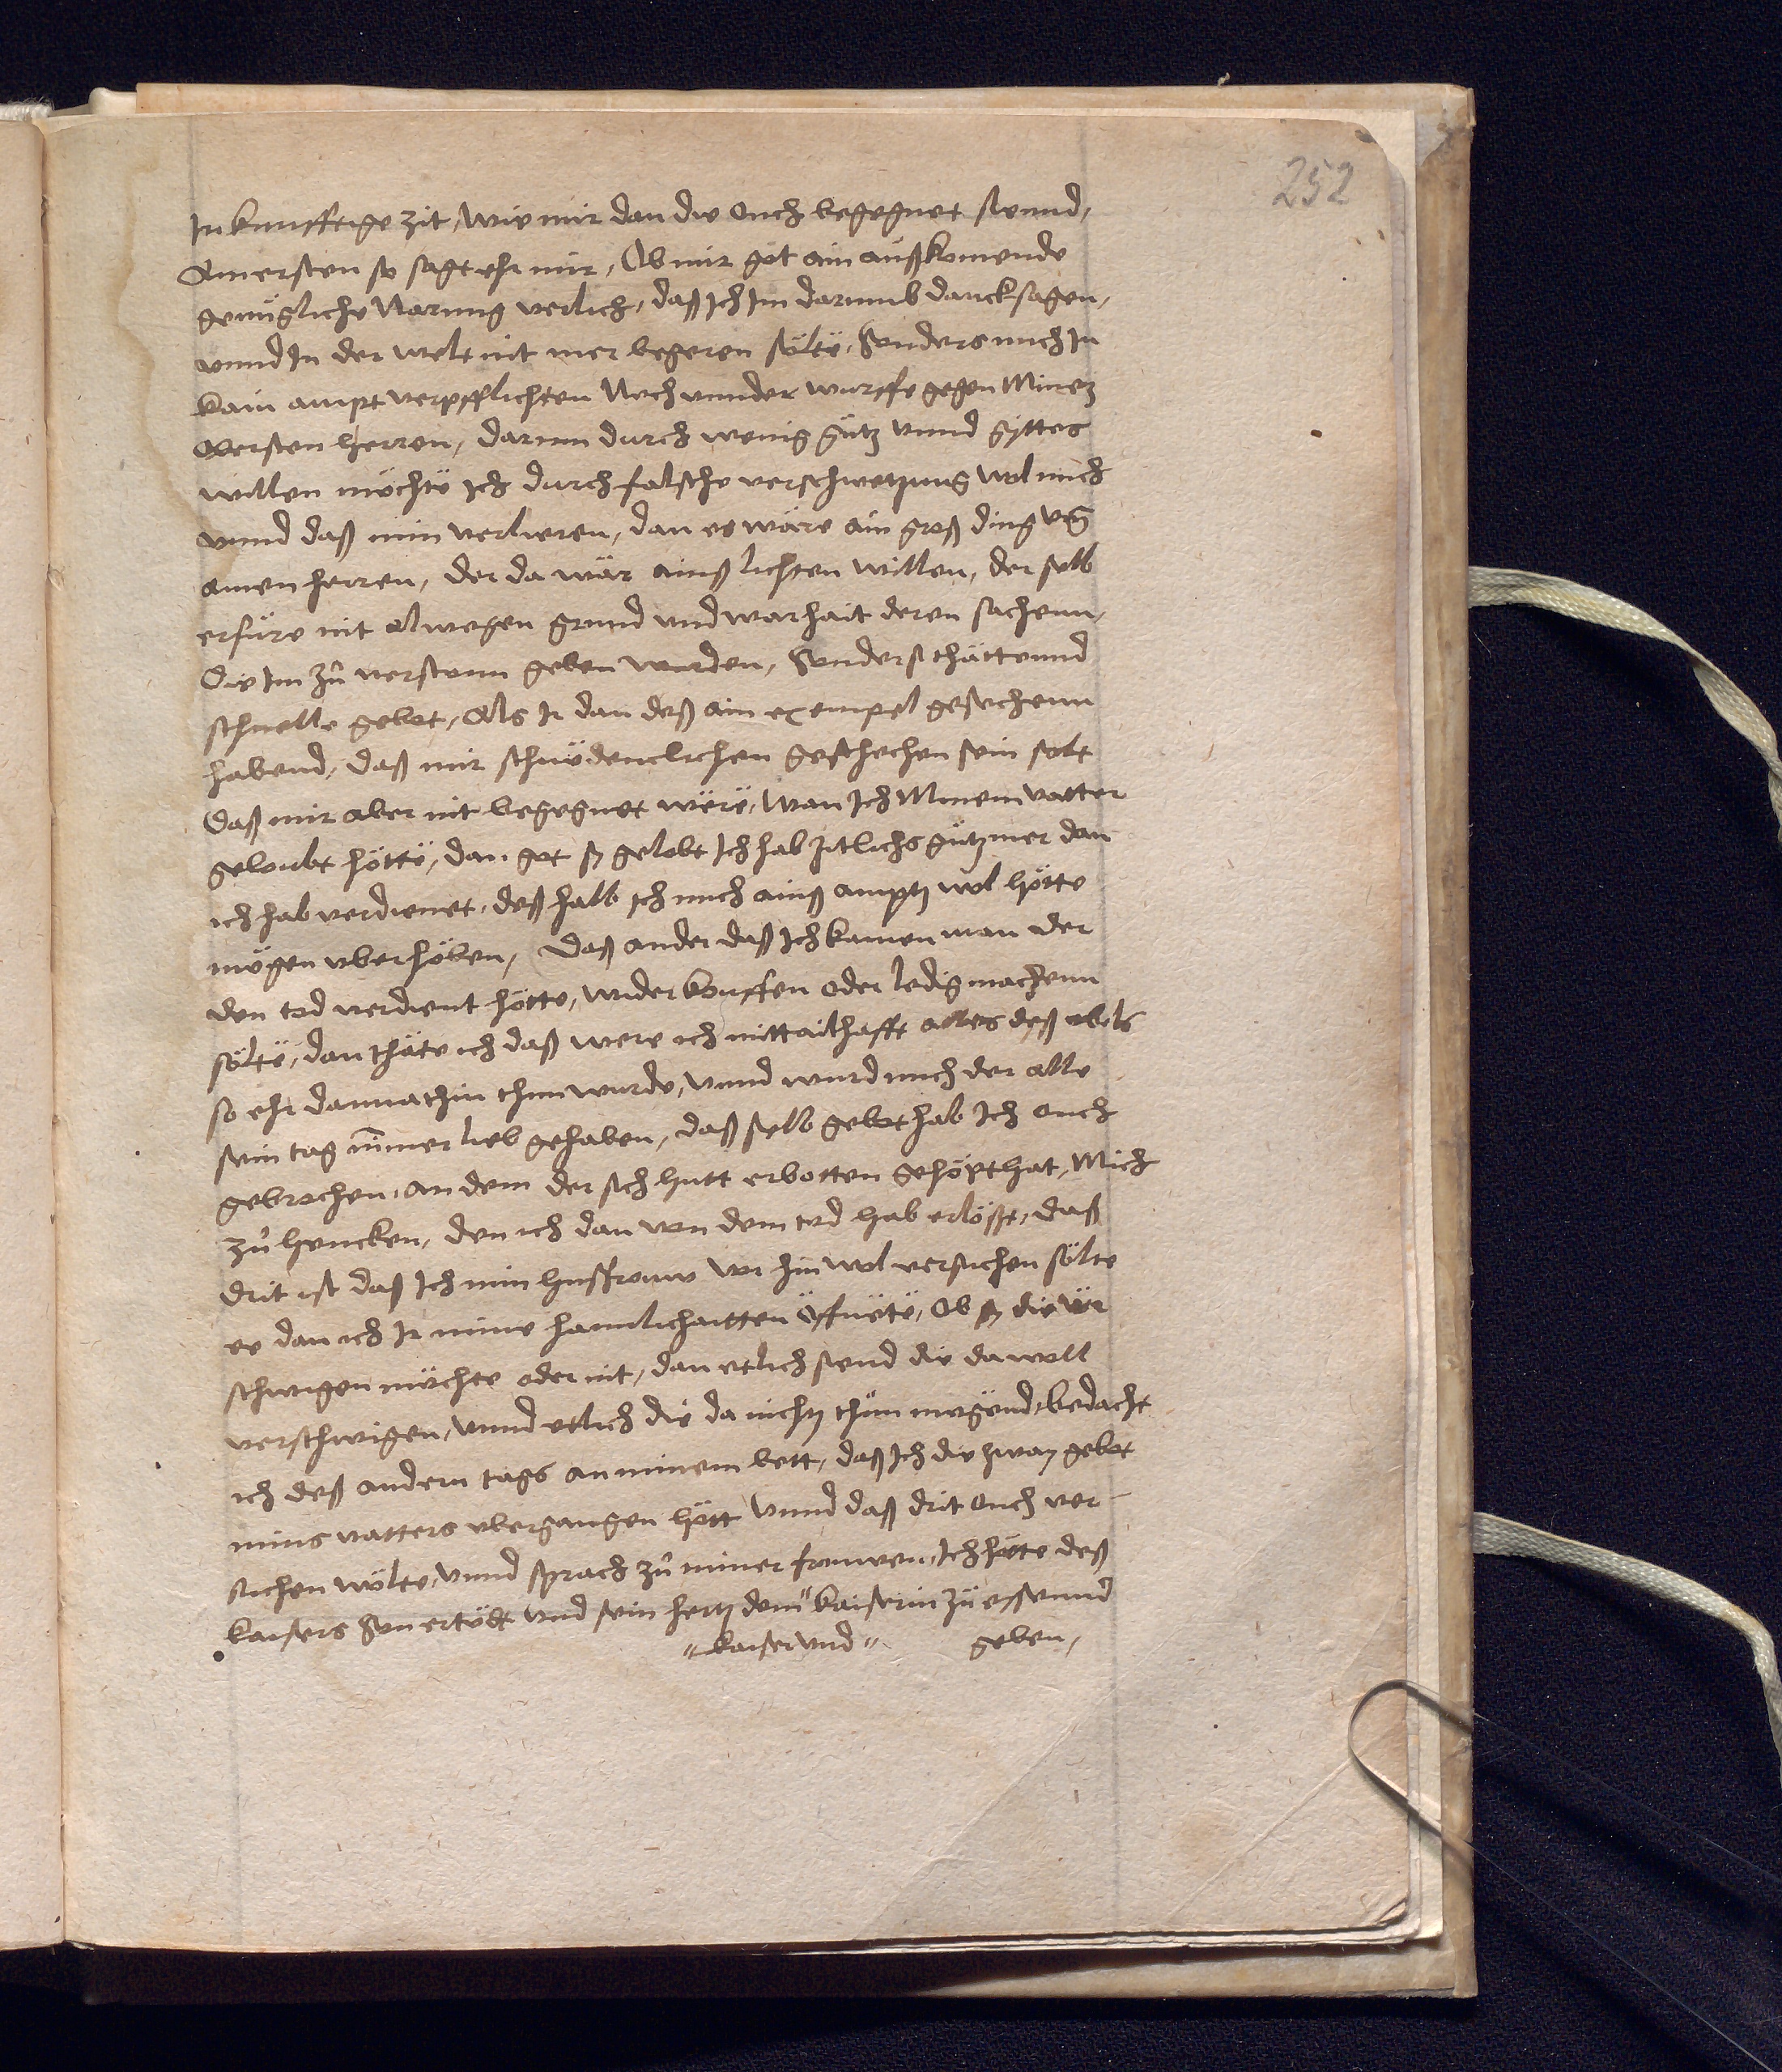 252
In kunfftige zit, wie mir dan die ouch begegnet seund,
Am ersten so sagt ehr mir, Ob mir got ain außkomende
genügliche Narung verlich, daß Ich Im darumb dancksagen,
vnnd In der welt nit mer begeren sölte, Sonders mich In
kain ampt verpfflichten Noch vnnder wurffe gegen Minem
obersten herren, darum durch wenig gutz vnnd gyttes
willen möchte Ich durch falsche verschwetzung wol mich
vnnd daß min verlieren, dan es wäre ain groß ding vm̄
ainen herren, der da wär ainß lichten willen, der selb
erfüre nit alwegen grund vnd warhait deren sachenn,
Die Im zů verstonn geben wurden, Sonders thättennd
schnelle gebot, Als Ir dan deß ain exempel gesechenn
habend, daß mir schnödencklichen geschechen sein solt
Daß mir aber nit begegnet wäre, Wan Ich Minem vatter
geloubt hötte, dan got sy gelobt Ich hab zitlichs gutz mer dan
ich hab verdienet, deß halb Ich mich ainß amptz wol hötte
mögen vberhöben, Daß ander daß Ich kainen man der
den tod verdient hötte, widerkouffen oder ledig machenn
sölte, dan thäte ich daß were ich mittailhafft alles deß vbels
so ehr dannathin thun wurde, vnnd wurd mich der alle
sein tag nimmer lieb gehaben, daß selb gebot hab Ich ouch
gebrochen, an dem der sich hutt erbotten gehöpt hat, Mich
zů hencken, den ich dan von dem tod hab erlößt, daß
drit ist daß Ich min husfrouw vor hin wol versuchen sölte
ee dan ich Ir mine haimlichaitten öffnete, Ob sy die vür
schwigen möchte oder nit, dan etlich seind die da woll
verschwigen, vnnd etlich die da nichtz thun mögend, bedacht
ich deß andern tags an minem bett, daß Ich die zway gebot
mins vatters vbergangen hött vnnd daß drit ouch ver-
suchen wölte, vnnd sprach zů miner frouwen, Ich hätte deß
kaisers Son ertödt vnd sein hertz dem " kaiserin zü essennd
" kaiser vnd " geben,